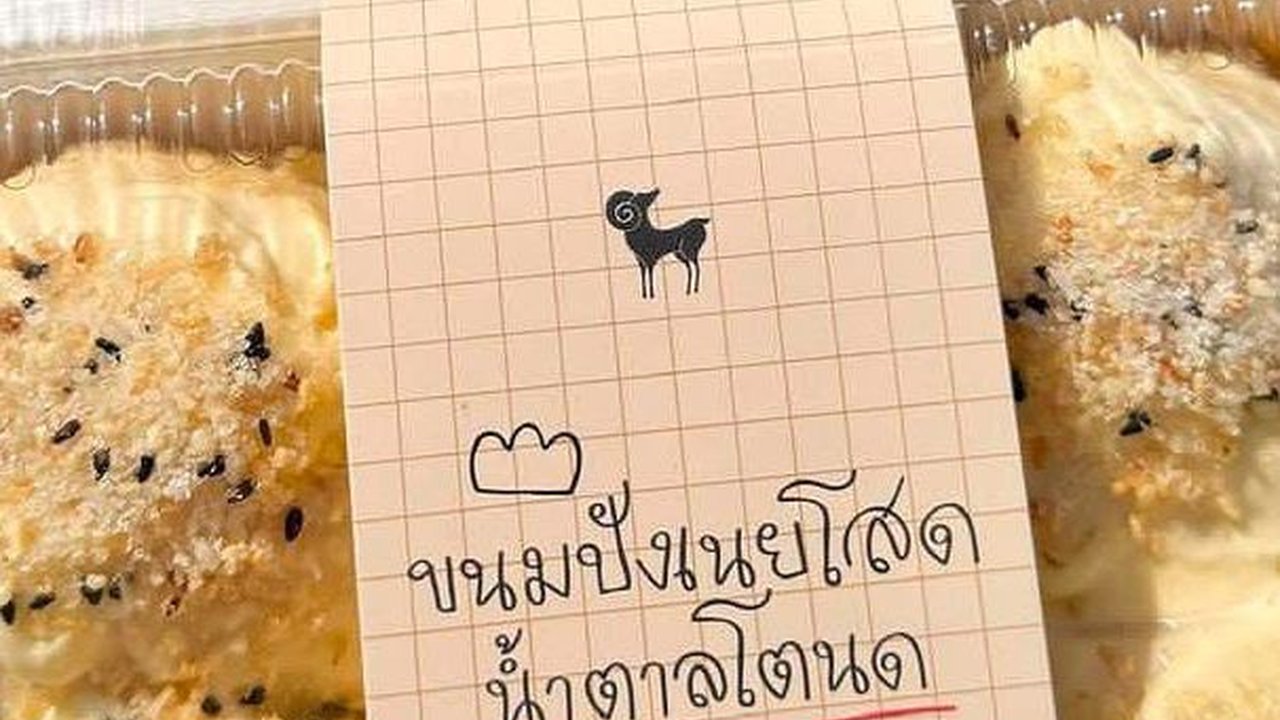 ขนมปังเนยโสด
น้ำตาลโตนด